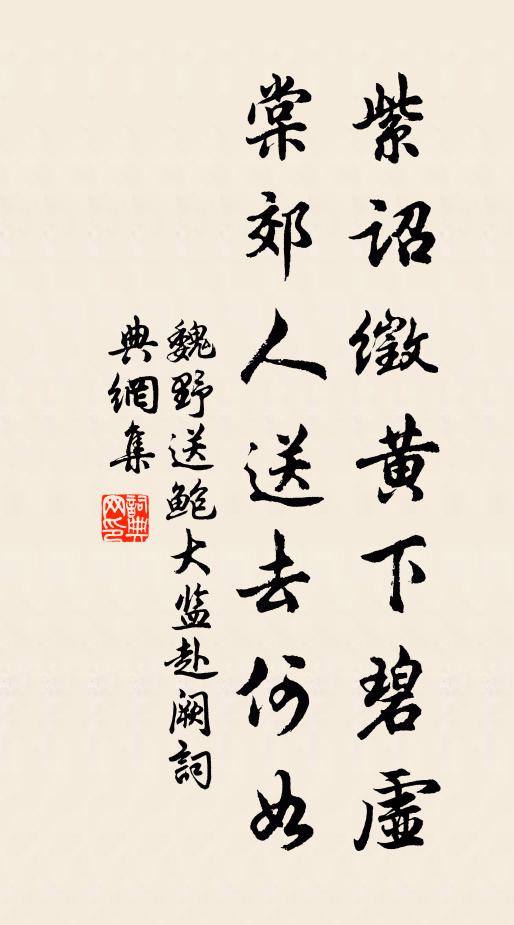 紫詔徵黄下碧虛
棠郊人送去何如
魏野送鮑大监赴阙詞
典網集
詞典网印